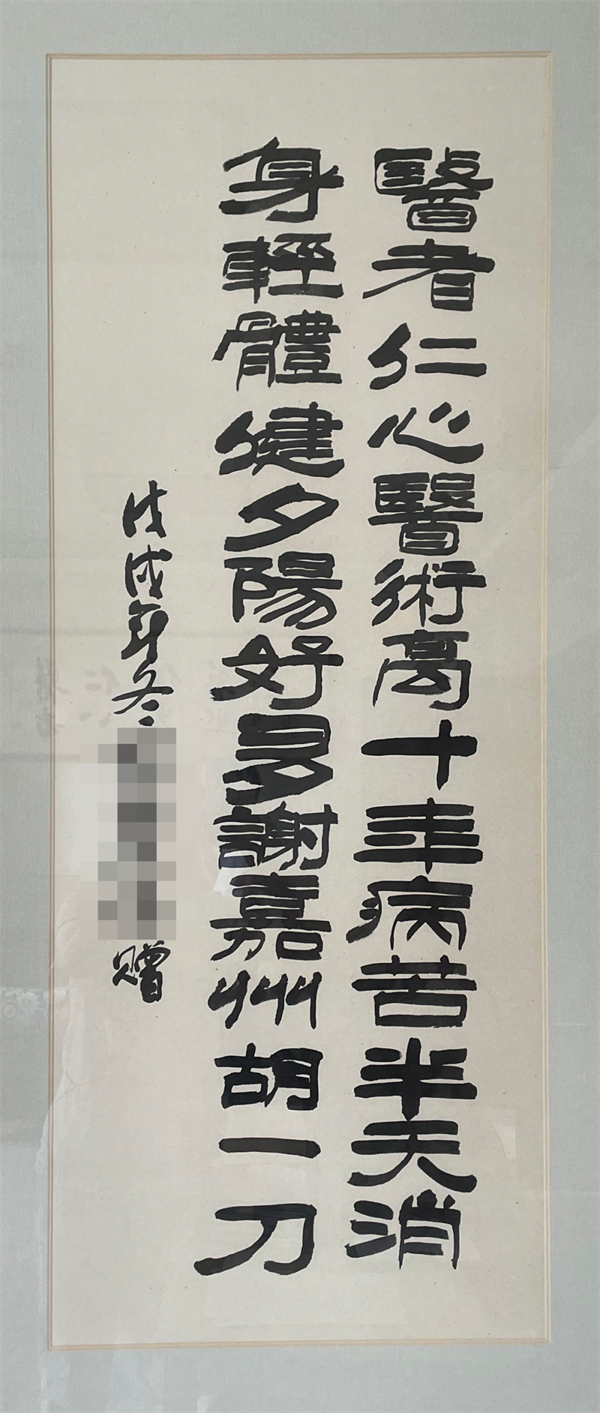 醫者仁心醫術高十年病苦半天消
身輕體健夕陽好多謝嘉州胡一刀
戊戌年冬
赠